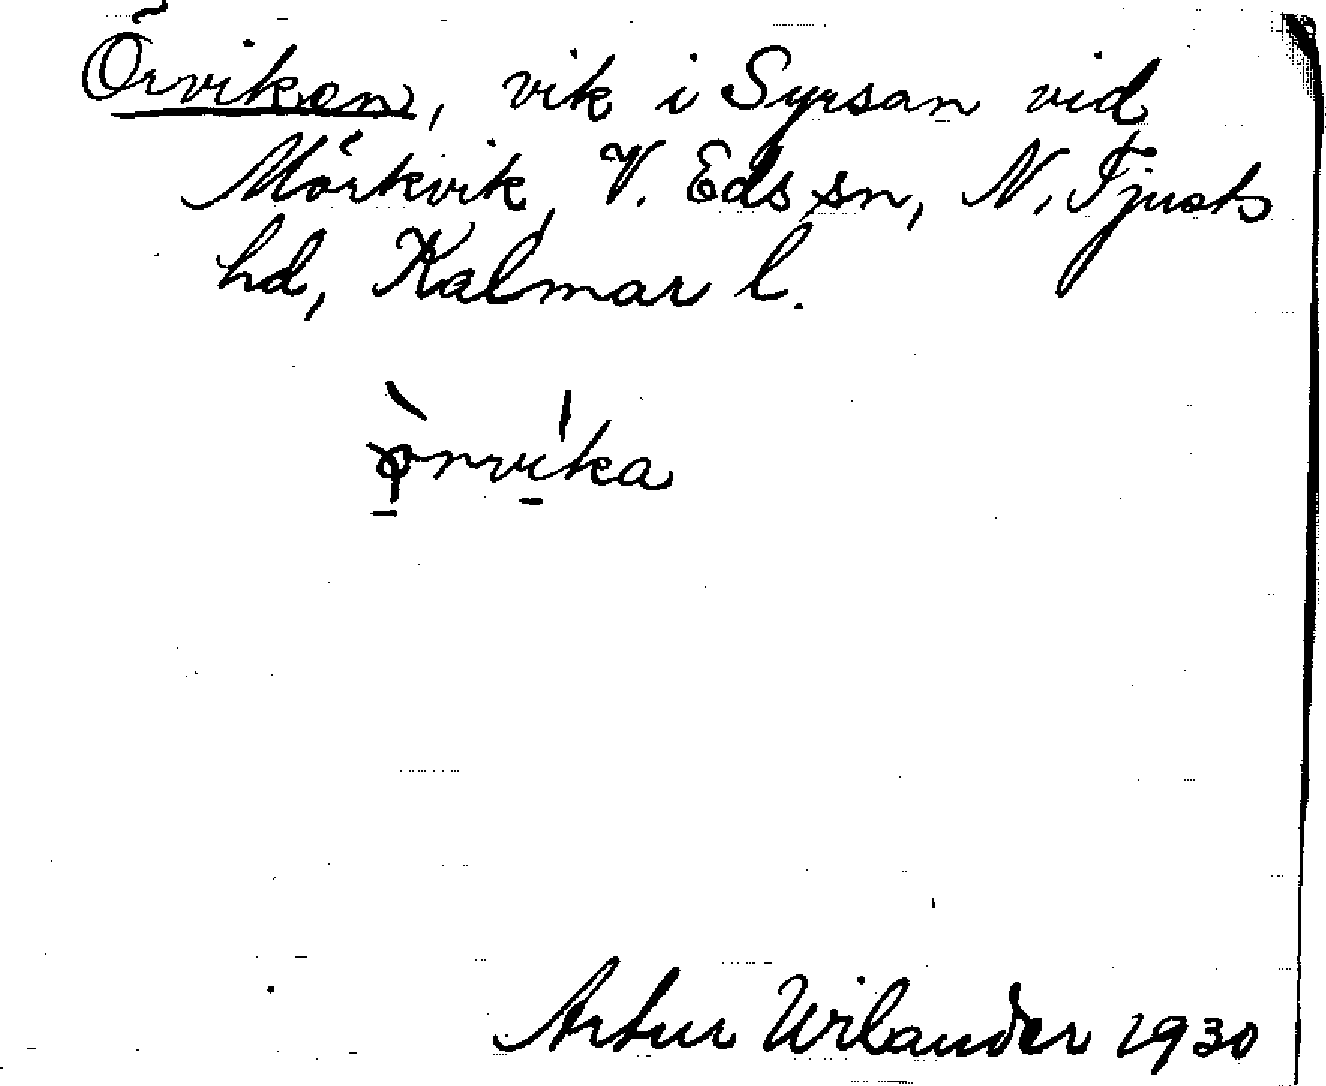 Örviken, vik i Syrsan vid
Mörkvik, V. Eds sn, N. Tjusts
hd, Kalmar l.
ö̀nvi̱ka
Artur Wilander 1930